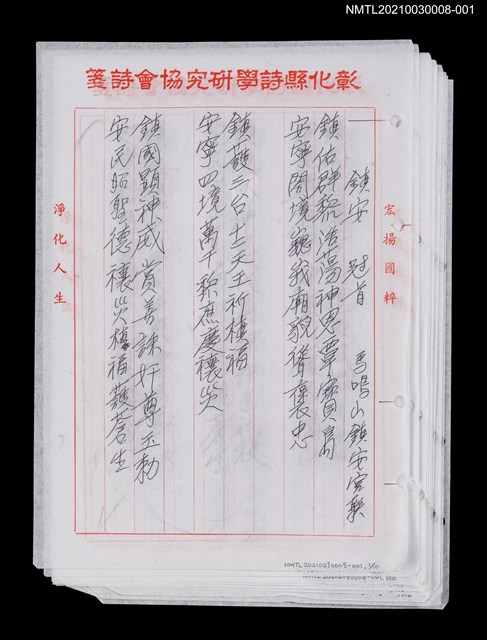 NMTL20210030008-001
彰化縣詩學研究協會詩箋
宏揚國粹
鎮安 冠首 馬鳴山鎮安宮聯
鎮佑群黎浩蕩神恩覃寶島
安寧闔境巍峨廟貌聳褒忠
鎮護三台十二天王祈植福
安寧四境萬千黎庶慶禳災
鎮國顯神威賞善誅奸尊玉勅
安民昭聖德禳災植福護蒼生
淨化人生
NMTL20210030008-001, 1/10
NMTL20210030008-001